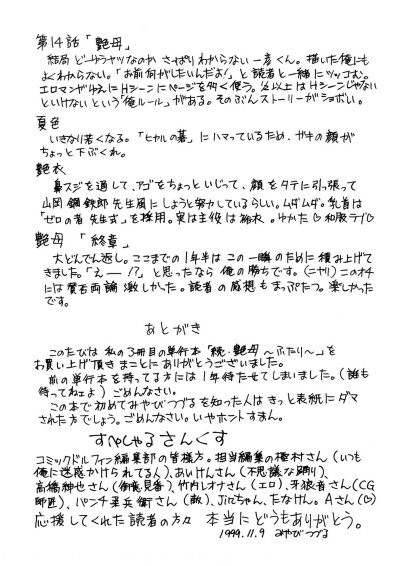 第14話「艶母」
結局どーゆうヤツなのか さっぱりわからない一彦くん。描いた俺にも
よくわからない。「お前何がしたいんだよ!」と読者と一緒にツッコむ。
エロマンガゆえにHシーンにページを多く使う。2/3以上はHシーンじゃない
といけないという「俺ルール」がある。そのぶんストーリーがショボい。
夏色
いきなり若くなる。「ヒカルの碁」にハマっているため、ガキの顔が
ちょっと下ぶくれ。
艶衣
鼻スジを通して、アゴをちょっといじって、顔をタテに引っ張って
山岡鋼鉄郎先生風にしようと努力しているらしい。ムダムダ。乳首は
「ゼロの者先生式」を採用。実は主役は 和衣。ゆかた♡和服ラブ♡
艶母「終章」
大どんでん返し。ここまでの1年半は この一瞬のために積み上げて
きました。「えー!?」と思ったなら 俺の勝ちです。(ニヤリ)このオチ
には賛否両論 激しかった。読者の感想もまっぷたつ。楽しかった
です。
あとがき
このたびは 私の3冊目の単行本「続・艶母〜ふたり〜」を
お買い上げ頂き まことにありがとうございました。
前の単行本を待ってる方には1年待たせてしまいました。(誰も
待ってねェよ)ごめんなさい。
この本で初めてみやびつづるを知った人は きっと表紙にダマ
された方でしょう。ごめんなさい。いやホントすまん。
すぺしゃるさんくす
コミックドルフィン編集部の皆様方。担当編集の種村さん(いつも
俺に迷惑かけられてる人)、あいけんさん(不思議な踊り)、
高橋紳也さん、竹内レオナさん(エロ)、牙狼者さん(CG
師匠)、パンチ忍兵衛さん(敵)、Jinちゃん、たなけん。Aさん(♡)
応援してくれた読者の方々 本当にどうもありがとう。
1999.11.9 みやびつづる